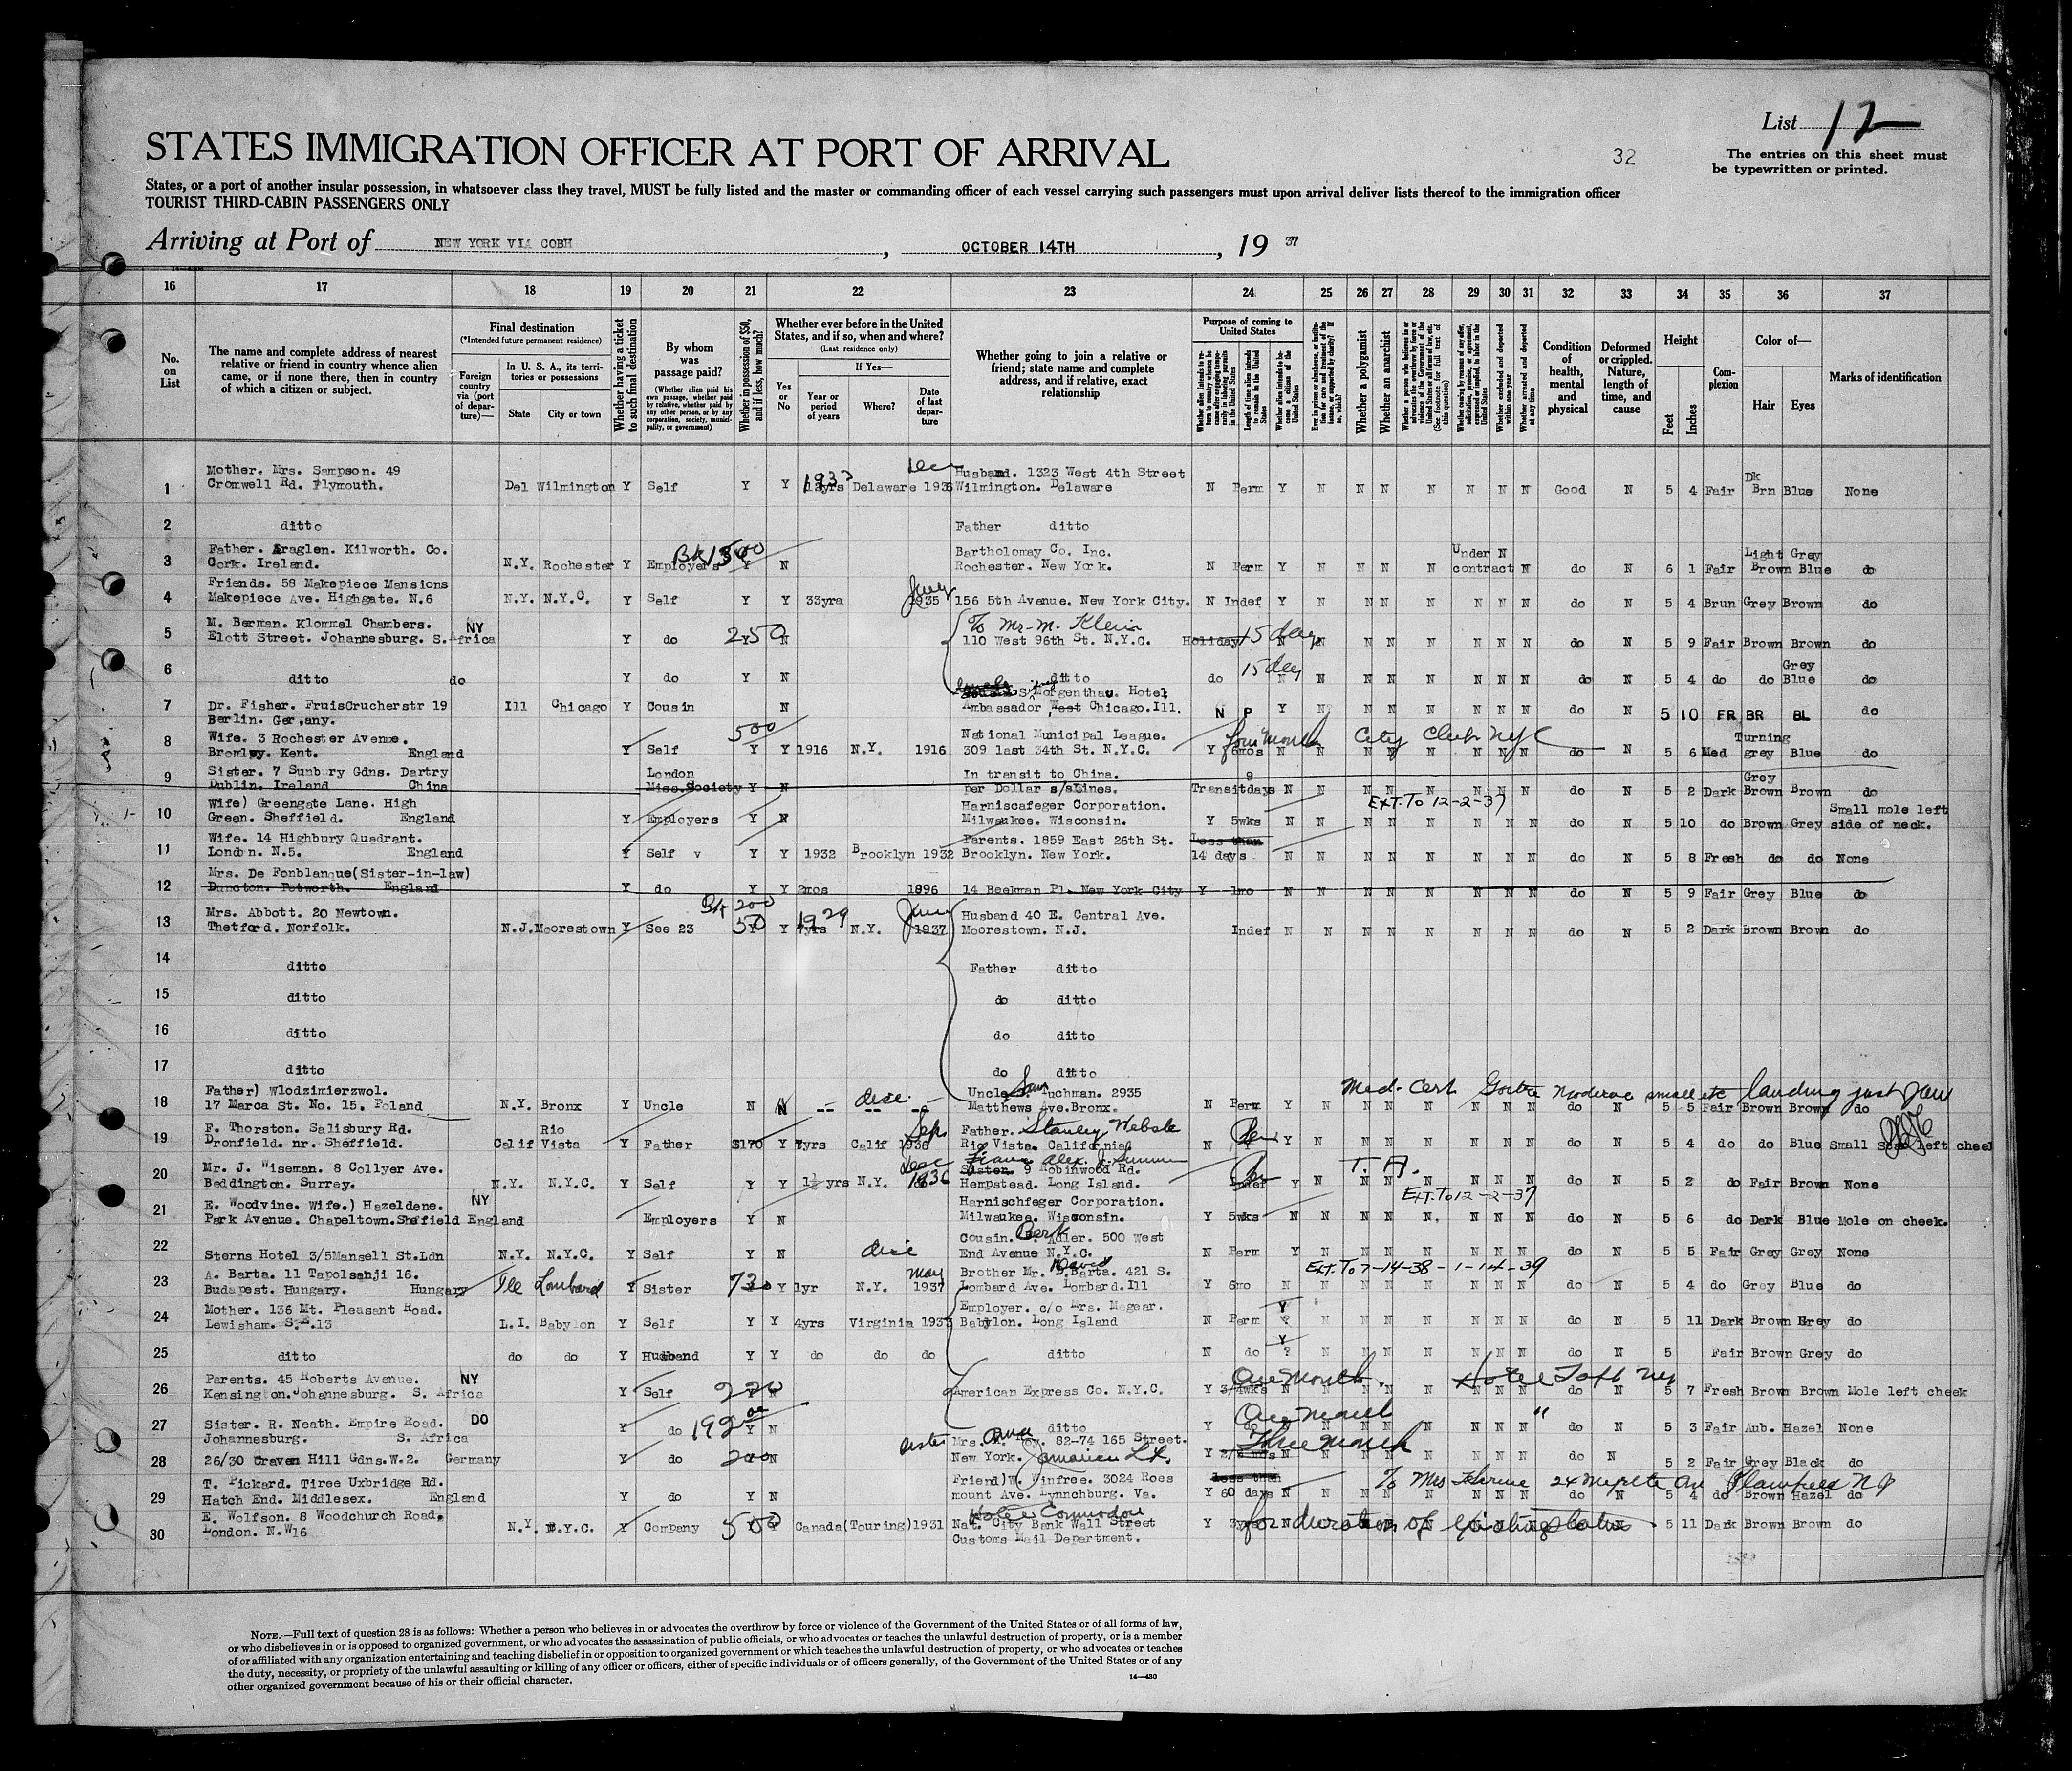 List 12
STATES IMMIGRATION OFFICER AT PORT OF ARRIVAL
32
The entries on this sheet must
be typewritten or printed.
States, or a port of another insular possession, in whatsoever class they travel, MUST be fully listed and the master or commanding officer of each vessel carrying such passengers must upon arrival deliver lists thereof to the immigration officer
TOURIST THIRD-CABIN PASSENGERS ONLY
Arriving at Port of NEW YORK VIA COBH, OCTOBER 14TH, 19 37
16 17 18 19 20 21 22 23 24 25 26 27 28 29 30 31 32 33 34 35 36 37
No. on List
The name and complete address of nearest relative or friend in country whence alien came, or if none there, then in country of which a citizen or subject.
Final destination
(*Intended future permanent residence)
Foreign country via (port of departure)—
In U. S. A., its territories or possessions
State City or town
Whether having a ticket to such final destination
By whom was passage paid?
(Whether alien paid his own passage, whether paid by relative, whether paid by any other person, or by any corporation, society, municipality, or government)
Whether in possession of $50, and if less, how much?
Whether ever before in the United States, and if so, when and where?
(Last residence only)
Yes or No
If Yes—
Year or period of years
Where?
Date of last departure
Whether going to join a relative or friend; state name and complete address, and if relative, exact relationship
Purpose of coming to United States
Whether a polygamist
Whether an anarchist
Whether excluded and deported within one year
Whether arrested and deported at any time
Condition of health, mental and physical
Deformed or crippled. Nature, length of time, and cause
Height
Feet Inches
Complexion
Color of—
Hair Eyes
Marks of identification
1 Mother. Mrs. Sampson. 49 Cromwell Rd. Plymouth. Del Wilmington Y Self Y Y 1933 Delaware Dec 1936 Husband. 1323 West 4th Street Wilmington. Delaware N Perm Y N N N N N N N Good N 5 4 Fair Dk Brn Blue None
2 ditto Father ditto
3 Father. Araglen. Kilworth. Co. Cork. Ireland. N.Y. Rochester Y Employers Y N Bartholomay Co. Inc. Rochester. New York. N Perm Y N N N N Under contract N N do N 6 1 Fair Light Brown Grey Blue do
4 Friends. 58 Makepiece Mansions Makepiece Ave. Highgate. N.6 N.Y. N.Y.C. Y Self Y Y 33yrs 1935 156 5th Avenue. New York City. N Indef Y N N N N N N N do N 5 4 Brun Grey Brown do
5 M. Berman. Klommel Chambers. Elott Street. Johannesburg. S. Africa NY Y do 250 N To Mr. M. Klein 110 West 96th St. N.Y.C. Holiday 15 day N N N N N N N N do N 5 9 Fair Brown Brown do
6 ditto do Y do Y N ditto do 15 day N N N N N N N N do N 5 4 do do Grey Blue do
7 Dr. Fisher. FruisCrucherstr 19 Berlin. Ger,any. Ill Chicago Y Cousin N S. Morgenthau. Hotel Ambassador West Chicago. Ill. N P Y N N N N N N N do N 5 10 FR BR BL do
8 Wife. 3 Rochester Avenue. Bromley. Kent. England Y Self 500 Y Y 1916 N.Y. 1916 National Municipal League. 309 East 34th St. N.Y.C. Y 6mos four month City Club NYC do N 5 6 Med Turning grey Blue do
9 Sister. 7 Sunbury Gdns. Dartry Dublin. Ireland China London Miss. Society Y N In transit to China. per Dollar s/sLines. Transit 9 days N N N N N N N N do N 5 2 Dark Grey Brown Brown do
10 Wife) Greengate Lane. High Green. Sheffield. England Y Employers Y N Harniscafeger Corporation. Milwaukee. Wisconsin. Y 5wks N N EXT. TO 12-2-37 N N N N N N do N 5 10 do Brown Grey Small mole left side of neck.
11 Wife. 14 Highbury Quadrant. London. N.5. England Y Self v Y Y 1932 Brooklyn 1932 Parents. 1859 East 26th St. Brooklyn. New York. Less than 14 days N N N N N N N N do N 5 8 Fresh do do None
12 Mrs. De Fonblanque(Sister-in-law) Duncton. Petworth. England Y do Y Y 2mos 1896 14 Beekman Pl. New York City Y 1mo N N N N N N N N do N 5 9 Fair Grey Blue do
13 Mrs. Abbott. 20 Newtown. Thetford. Norfolk. N.J. Moorestown Y See 23 50 Y 1929 N.Y. 1937 Husband 40 E. Central Ave. Moorestown. N.J. Indef N N N N N N N N do N 5 2 Dark Brown Brown do
14 ditto Father ditto
15 ditto do ditto
16 ditto do ditto
17 ditto do ditto
18 Father) Wlodzimierzwol. 17 Marca St. No. 15. Poland N.Y. Bronx Y Uncle N N -- -- -- Uncle Sam Tuchman. 2935 Matthews Ave. Bronx. N Perm Y Med. Cert N N N N N N N do N 5 5 Fair Brown Brown do
19 F. Thorston. Salisbury Rd. Dronfield. nr. Sheffield. Calif Rio Vista Y Father $170 Y 7yrs Calif Sep 1936 Father. Stanley Webste Rio Vista. California N Y N N N N N N N do N 5 4 do do Blue Small Scar left cheek
20 Mr. J. Wiseman. 8 Collyer Ave. Beddington. Surrey. N.Y. N.Y.C. Y Self Y Y 1½yrs N.Y. Dec 1936 Sister. 9 Robinwood Rd. Hempstead. Long Island. Indef Y N N N N N N N do N 5 2 do Fair Brown None
21 E. Woodvine. Wife.) Hazeldene. Park Avenue. Chapeltown. Sheffield England NY Employers Y N Harnischfeger Corporation. Milwaukee. Wisconsin. Y 5wks N N EXT. TO 12-2-37 N N N N N N do N 5 6 do Dark Blue Mole on cheek.
22 Sterns Hotel 3/5Mansell St.Ldn N.Y. N.Y.C. Y Self Y N Cousin. Adler. 500 West End Avenue N.Y.C. N Perm Y N N N N N N N do N 5 5 Fair Grey Grey None
23 A. Barta. 11 Tapolsanji 16. Budapest. Hungary. Hungary Ill Lombard Y Sister 730 Y 1yr N.Y. May 1937 Brother Mr. David Barta. 421 S. Lombard Ave. Lombard. Ill Y 6mo N EXT. TO 7-14-38 - 1-14-39 N N N N N N N do N 5 4 do Grey Blue do
24 Mother. 136 Mt. Pleasant Road. Lewisham. S.E.13 L.I. Babylon Y Self Y Y 4yrs Virginia 1933 Employer. c/o Mrs. Magear. Babylon. Long Island N Perm Y ? N N N N N N N do N 5 11 Dark Brown Grey do
25 ditto do do Y Husband Y Y do do do ditto N do Y ? N N N N N N N do N 5 Fair Brown Grey do
26 Parents. 45 Roberts Avenue. Kensington. Johannesburg. S. Africa NY Y Self 220 N American Express Co. N.Y.C. Y 3/4wks One Month. Hotel Taft NY do N 5 7 Fresh Brown Brown Mole left cheek
27 Sister. R. Neath. Empire Road. Johannesburg. S. Africa DO Y do 192 Y N ditto Y do One Month " N N N N N N do N 5 3 Fair Aub. Hazel None
28 26/30 Craven Hill Gdns. W.2. Germany Y do 200 N sister Mrs. 82-74 165 Street. New York. Jamaica L.I. Y Three Month N N N N N N do N 5 2 Fair Grey Black do
29 T. Pickard. Tiree Uxbridge Rd. Hatch End. Middlesex. England Y do Y N Friend)W. Winfree. 3024 Roesmount Ave. Lynnchburg. Va. less than Y 60 days N To Mrs 24 Myrtle Av Plainfield N J N N N N N N do N 5 4 do Brown Hazel do
30 E. Wolfson. 8 Woodchurch Road, London. N.W16 N.Y. N.Y.C. Y Company 500 Y Canada(Touring)1931 Hotel Commodore Nat. City Bank Wall Street Customs Mail Department. Y 3yrs for duration of existing status 5 11 Dark Brown Brown do
NOTE.—Full text of question 28 is as follows: Whether a person who believes in or advocates the overthrow by force or violence of the Government of the United States or of all forms of law,
or who disbelieves in or is opposed to organized government, or who advocates the assassination of public officials, or who advocates or teaches the unlawful destruction of property, or is a member
of or affiliated with any organization entertaining and teaching disbelief in or opposition to organized government or which teaches the unlawful destruction of property, or who advocates or teaches
the duty, necessity, or propriety of the unlawful assaulting or killing of any officer or officers, either of specific individuals or of officers generally, of the Government of the United States or of any
other organized government because of his or their official character.
14—430